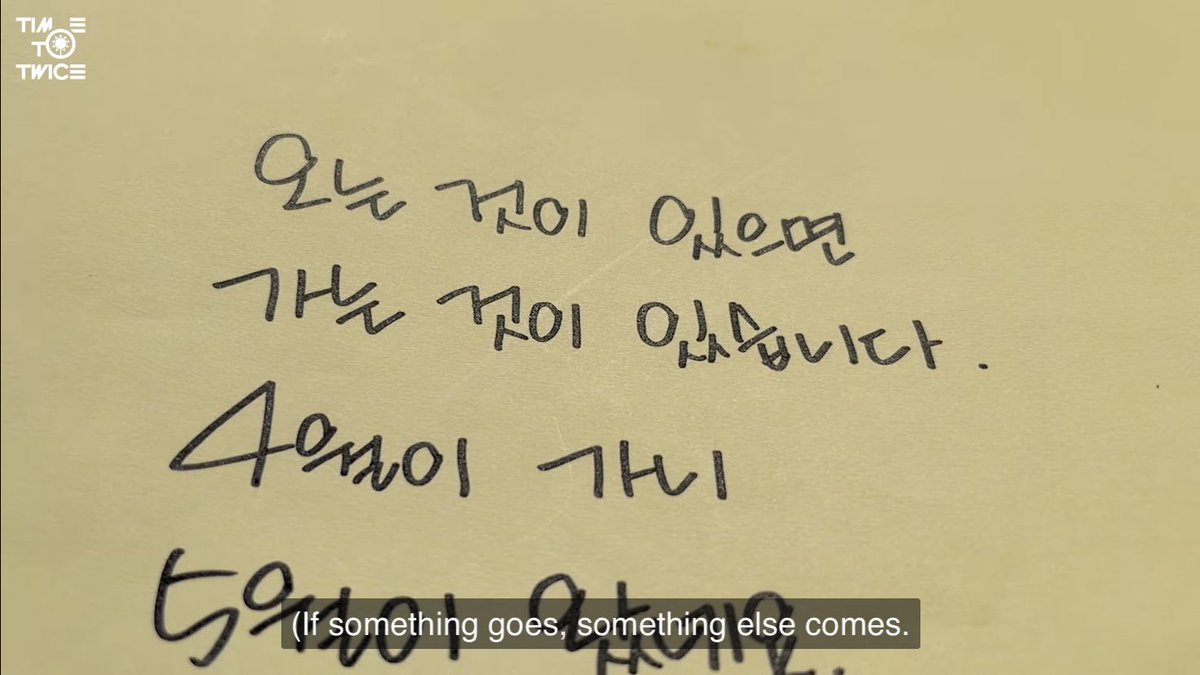 TIME
TO
TWICE
오는 것이 있으면
가는 것이 있습니다.
4월이 가니
5월이 왔네요.
(If something goes, something else comes.